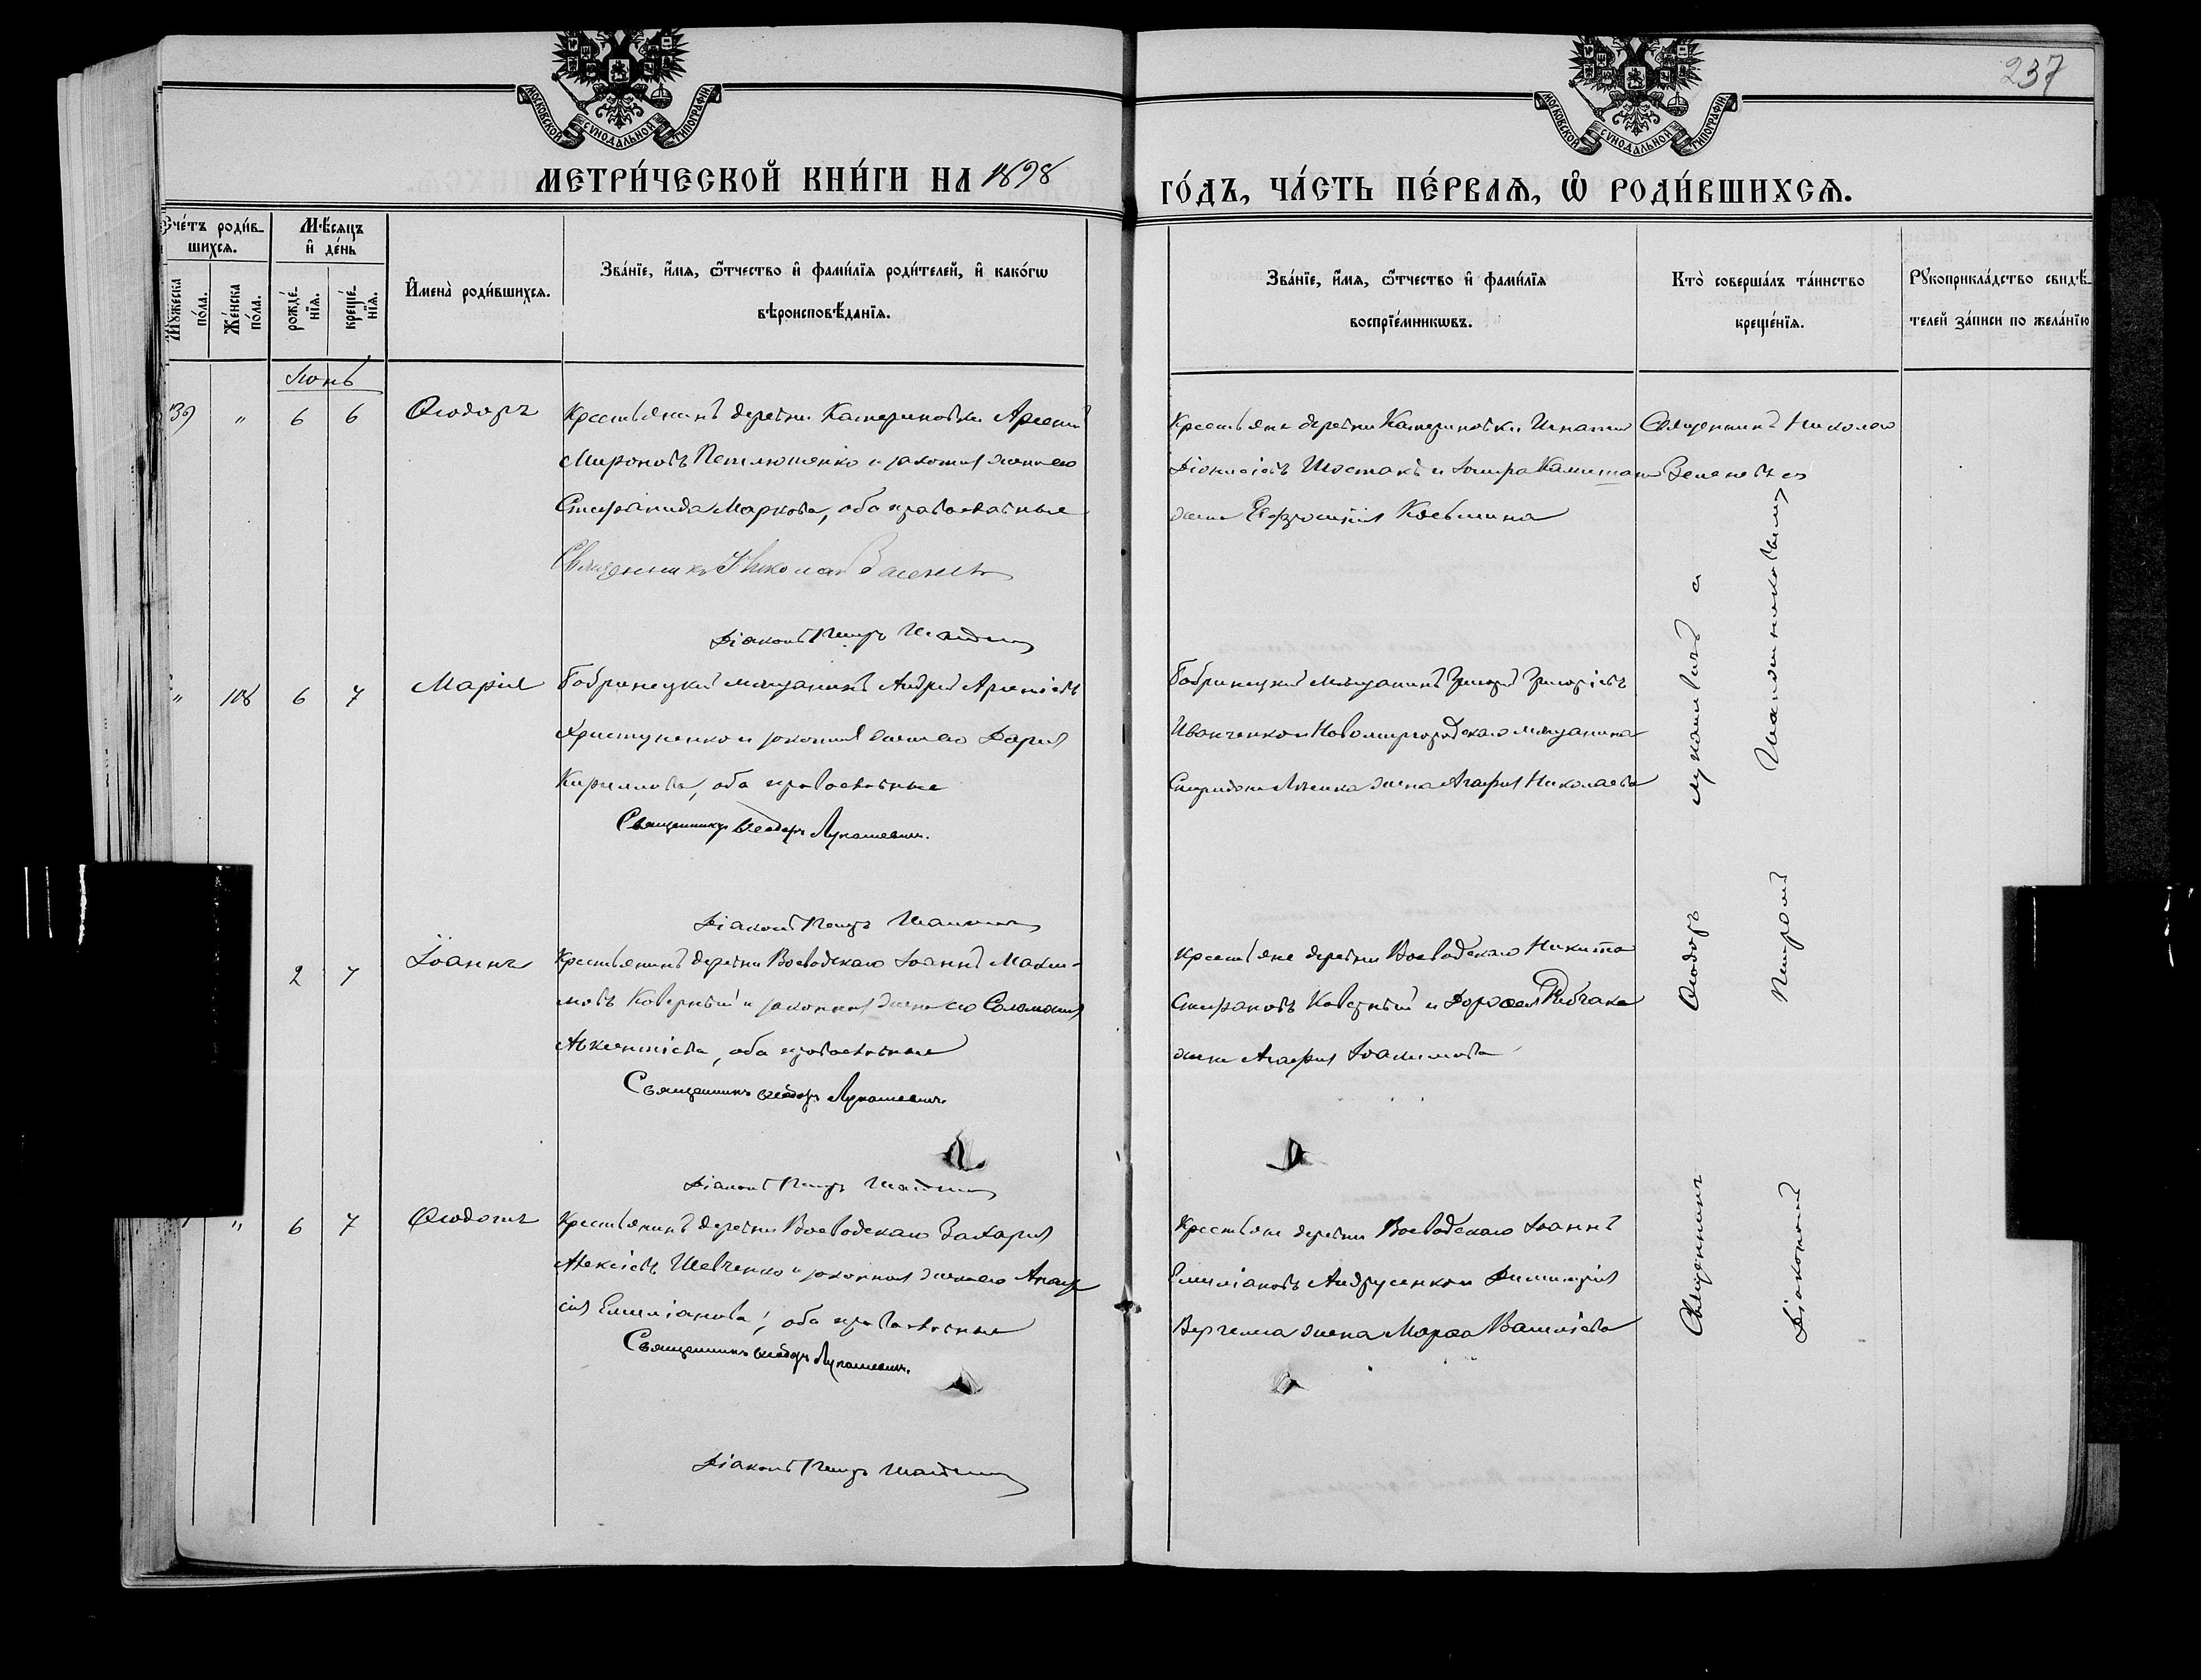 237
МОСКОВСКОЙ СѴНОДАЛЬНОЙ ТИПОГРАФІИ
МОСКОВСКОЙ СѴНОДАЛЬНОЙ ТИПОГРАФІИ
МЕТРИ́ЧЕСКОЙ КНИ́ГИ НА 1898
ГО́ДЪ, ЧА́СТЬ ПЕ́РВАѦ, Ѽ РОДИ́ВШИХСѦ.
Счéтъ роди́в-
шихсѧ.
Мꙋ́жеска по́ла.
Же́нска по́ла.
Мѣ́сѧцъ
и҆ де́нь
рожде́-
нїѧ.
креще́-
нїѧ.
И҆мена̀ роди́вшихсѧ.
Зва́нїе, и҆́мѧ, ѻ҆́тчество и҆ фами́лїѧ роди́телей, и҆ како́гѡ
вѣроисповѣ́данїѧ.
Зва́нїе, и҆́мѧ, ѻ҆́тчество и҆ фами́лїѧ
воспрїе́мникѡвъ.
Кто̀ соверша́лъ та́инство
креще́нїѧ.
Рꙋкоприкла́дство свидѣ́-
телей за́писи по жела́нїю
Іюнь
39 " 6 6 Ѳеодоръ
Крестьянинъ деревни Катериновки Арсеній
Мироновъ Петлюченко и законная жена его
Стефанида Маркова, оба православные
Священникъ Николай
Діаконъ Петръ
Крестьяне деревни Катериновки Игнатій
Діонисіевъ Шостакъ и
жена Евфросинія Косьмина
Священникъ Николай
" 108 6 7 Марія
Бобринецкій мѣщанинъ Андрей Арсеніевъ
Христуненко и законная жена его Дарія
Кириллова, оба православные
Священникъ Ѳеодоръ Лукашевичъ.
Діаконъ Петръ
Бобринецкій мѣщанинъ Григорій Григоріевъ
Иванченко и Новомиргородскаго мѣщанина
Спиридона жена Агафія Николаева
2 7 Іоаннъ
Крестьянинъ деревни Воеводскаго Іоаннъ Макси-
мовъ Коверный и законная жена его Соломонія
Авксентіева, оба православные
Священникъ Ѳеодоръ Лукашевичъ.
Діаконъ Петръ
Крестьяне деревни Воеводскаго Никита
Стефановъ Коверный и Дороѳея Рибчака
жена Агафія Іоакимова
" 6 7 Ѳеодотъ
Крестьянинъ деревни Воеводскаго Захарія
Алексіевъ Шевченко и законная жена его Анаста-
сія Емиліанова, оба православные
Священникъ Ѳеодоръ Лукашевичъ.
Діаконъ Петръ
Крестьяне деревни Воеводскаго Іоаннъ
Емиліановъ Андрусенко и Димитрія
жена Марѳа Василіева
Священникъ Ѳеодоръ Лукашевичъ съ
Діакономъ Петромъ